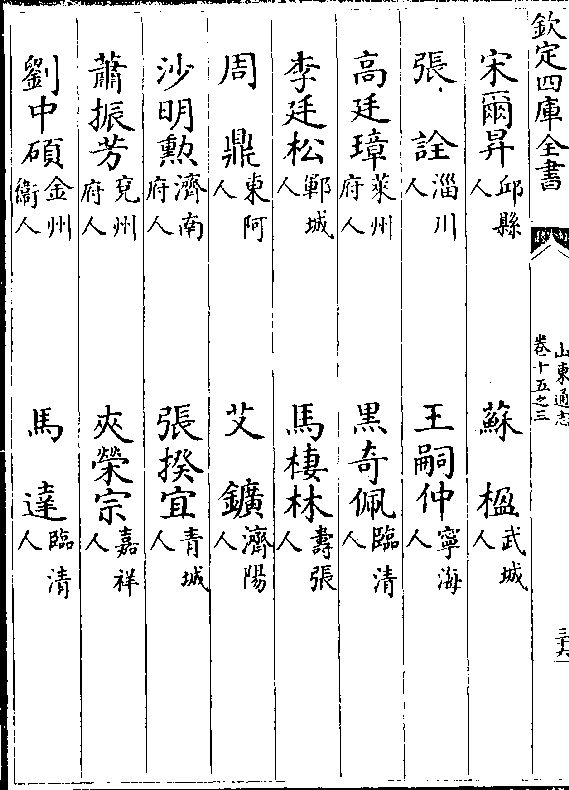 欽定四庫全書
山東通志
卷十五之三
三十六
宋爾昇邱縣人 蘇楹武城人
張詮淄川人 王嗣仲寧海人
高廷璋萊州府人 黒奇佩臨清人
李廷松鄆城人 馬棲林壽張人
周鼎東阿人 艾鑛濟陽人
沙明勲濟南府人 張揆宜青城人
蕭振芳兗州府人 夾榮宗嘉祥人
劉中碩金州衞人 馬達臨清人